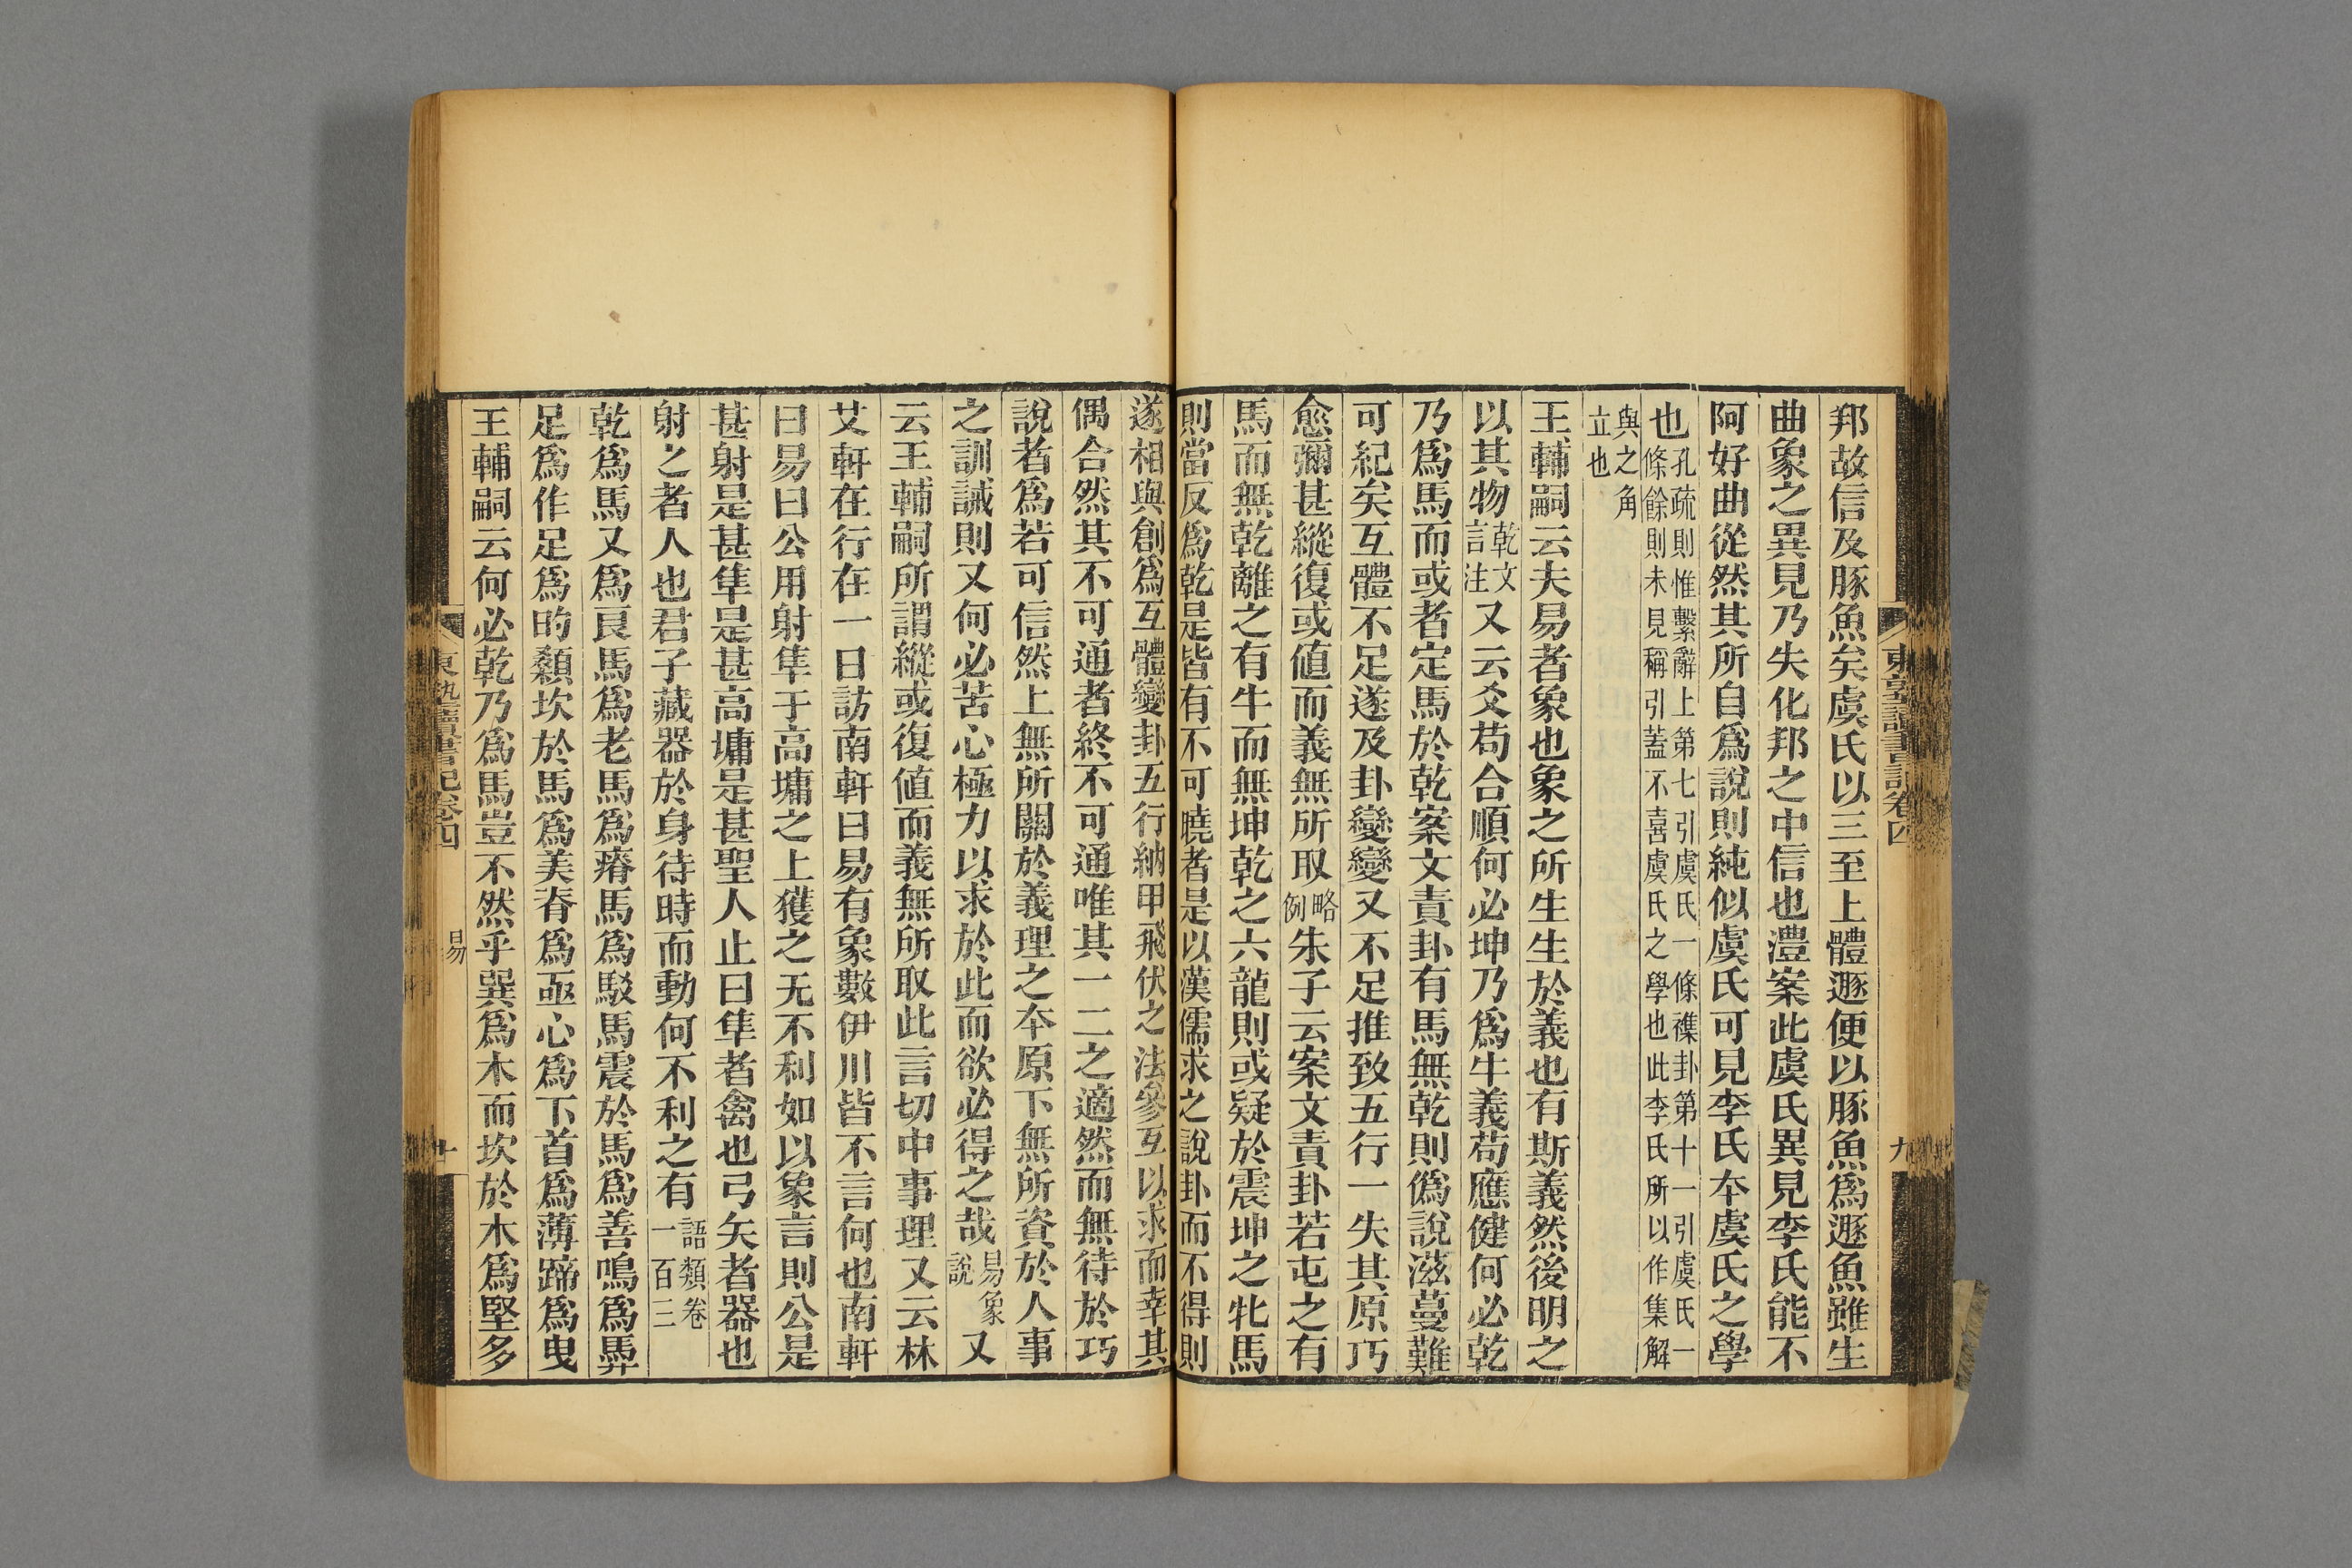 邦故信及豚魚矣虞氏以三至上體遯便以豚魚爲遯魚雖生
曲象之異見乃失化邦之中信也澧案此虞氏異見李氏能不
阿好曲從然其所自爲說則純似虞氏可見李氏夲虞氏之學
也孔疏則惟繫辭上第七引虞氏一條襍卦第十一引虞氏一
條餘則未見稱引蓋不喜虞氏之學也此李氏所以作集解
與之角
立也
王輔嗣云夫易者象也象之所生生於義也有斯義然後明之
以其物乾文言注又云爻苟合順何必坤乃爲牛義苟應健何必乾
乃爲馬而或者定馬於乾案文責卦有馬無乾則僞說滋蔓難
可紀矣互體不足遂及卦變變又不足推致五行一失其原巧
愈彌甚縱復或値而義無所取略例朱子云案文責卦若屯之有
馬而無乾離之有牛而無坤乾之六龍則或疑於震坤之牝馬
則當反爲乾是皆有不可曉者是以漢儒求之說卦而不得則
遂相與創爲互體變卦五行納甲飛伏之法參互以求而幸其
偶合然其不可通者終不可通唯其一二之適然而無待於巧
說者爲若可信然上無所關於義理之夲原下無所資於人事
之訓誡則又何必苦心極力以求於此而欲必得之哉易象說又
云王輔嗣所謂縱或復値而義無所取此言切中事理又云林
艾軒在行在一日訪南軒曰易有象數伊川皆不言何也南軒
曰易曰公用射隼于高墉之上獲之无不利如以象言則公是
甚射是甚隼是甚高墉是甚聖人止曰隼者禽也弓矢者器也
射之者人也君子藏器於身待時而動何不利之有語類卷一百三
乾爲馬又爲良馬爲老馬爲瘠馬爲駁馬震於馬爲善鳴爲馵
足爲作足爲的顙坎於馬爲美脊爲亟心爲下首爲薄蹄爲曳
王輔嗣云何必乾乃爲馬豈不然乎巽爲木而坎於木爲堅多